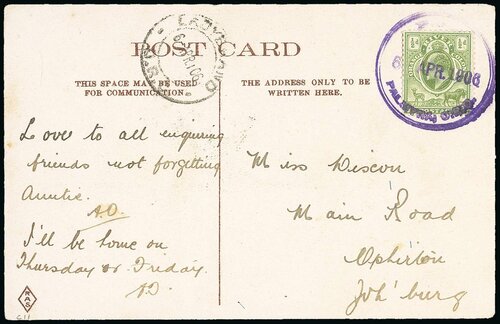 POST CARD
THIS SPACE MAY BE USED
FOR COMMUNICATION.
THE ADDRESS ONLY TO BE
WRITTEN HERE.
APR. 1906
½d
½d
Love to all enquiring
friends not forgetting
Auntie.
A.D.
I'll be home on
Thursday or Friday
A.D.
Miss Discon
Main Road
Ophirton
Joh'burg